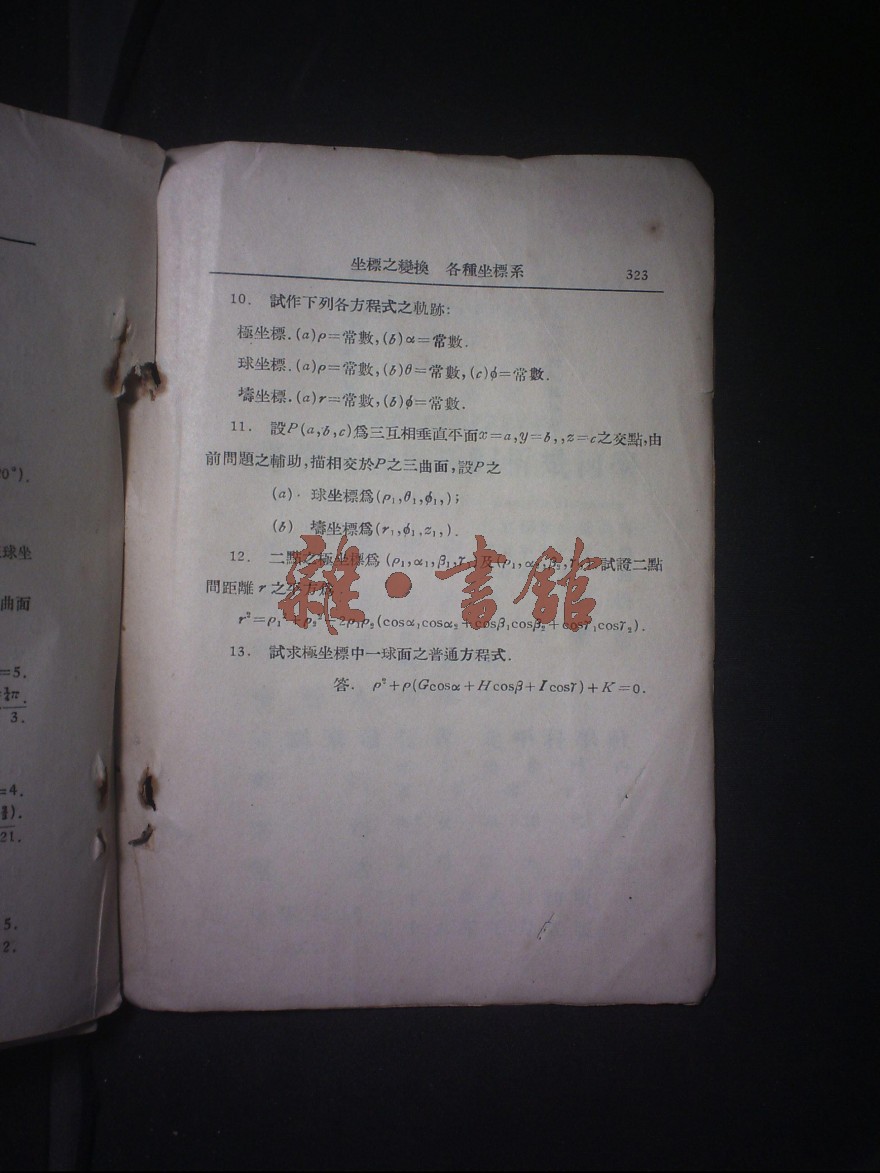 坐標之變換 各種坐標系 323
10. 試作下列各方程式之軌跡:
極坐標.(a)ρ=常數,(b)α=常數.
球坐標.(a)ρ=常數,(b)θ=常數,(c)ϕ=常數.
壔坐標.(a)r=常數,(b)ϕ=常數.
11. 設P(a,b,c)爲三互相垂直平面x=a,y=b,,z=c之交點,由
前問題之輔助,描相交於P之三曲面,設P之
(a). 球坐標爲(ρ₁,θ₁,ϕ₁,);
(b) 壔坐標爲(r₁,ϕ₁,z₁,).
12. 二點之極坐標爲 (ρ₁,α₁,β₁,γ₁)及 試證二點
問距離 r 之平方爲
r²=ρ₁²+ρ₂²−2ρ₁ρ₂(cosα₁cosα₂+cosβ₁cosβ₂+cosγ₁cosγ₂).
13. 試求極坐標中一球面之普通方程式.
答. ρ²+ρ(Gcosα+Hcosβ+Icosγ)+K=0.
雜·書館
0°).
球坐
曲面
=5.
¾π.
3.
=4.
21.
5.
2.